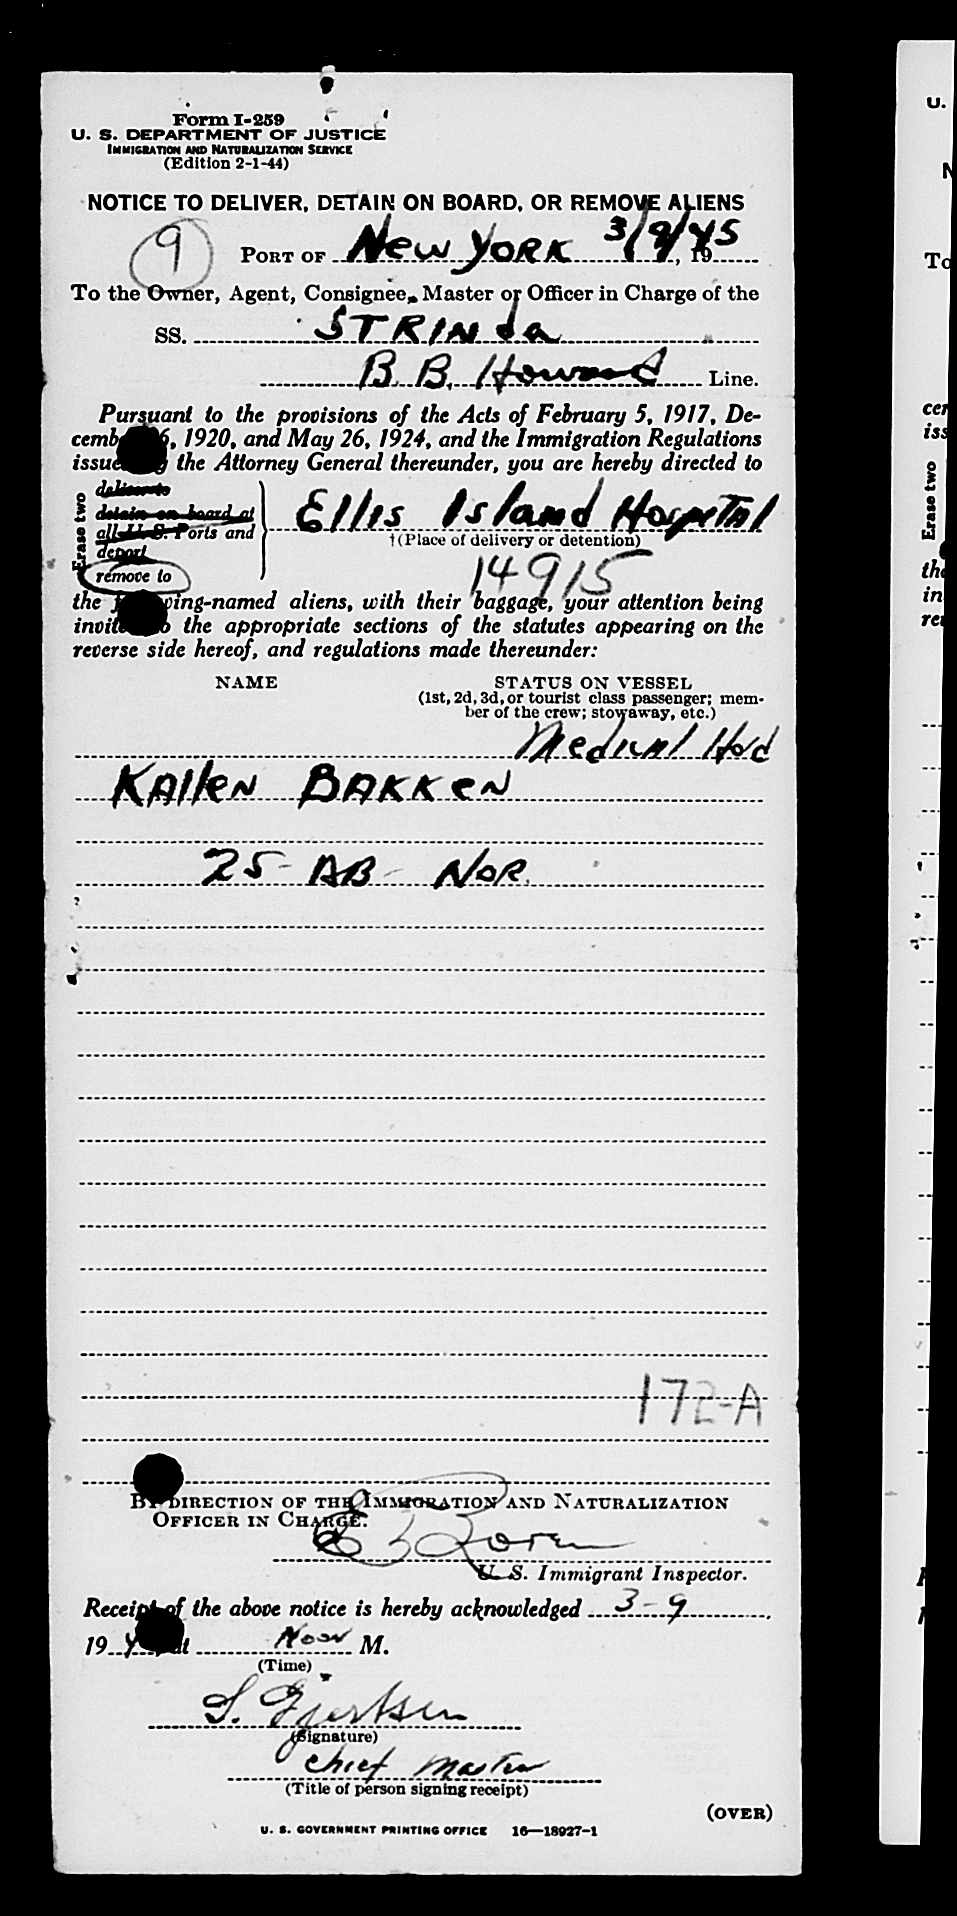 Form I-259
U. S. DEPARTMENT OF JUSTICE
IMMIGRATION AND NATURALIZATION SERVICE
(Edition 2-1-44)
NOTICE TO DELIVER, DETAIN ON BOARD, OR REMOVE ALIENS
9
PORT OF New York 3/9/45, 19
To the Owner, Agent, Consignee, Master or Officer in Charge of the
SS. STRINda
B. B. Howard Line.
Pursuant to the provisions of the Acts of February 5, 1917, De-
cemb 6, 1920, and May 26, 1924, and the Immigration Regulations
issue the Attorney General thereunder, you are hereby directed to
Erase two
deliver to
detain on board at
all U. S. Ports and
deport
remove to
Ellis Island Hospital
†(Place of delivery or detention)
14915
the f wing-named aliens, with their baggage, your attention being
invite o the appropriate sections of the statutes appearing on the
reverse side hereof, and regulations made thereunder:
NAME STATUS ON VESSEL
(1st, 2d, 3d, or tourist class passenger; mem-
ber of the crew; stowaway, etc.)
Medical Hold
KAllen BAKKeN
25 - AB - NOR.
172-A
BY DIRECTION OF THE IMMIGRATION AND NATURALIZATION
OFFICER IN CHARGE:
U. S. Immigrant Inspector.
Receipt of the above notice is hereby acknowledged 3-9,
19 4 at Noon M.
(Time)
S. Gjertsen
(Signature)
chief master
(Title of person signing receipt)
(OVER)
U. S. GOVERNMENT PRINTING OFFICE 16—18927-1
U.
N
To
cer
iss
Erase two
the
in
rev